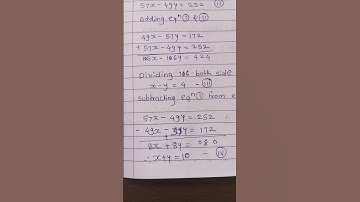 57x - 49y = 252 (ii)
Adding eqⁿ (i) & (ii)
49x - 57y = 172
+ 57x - 49y = 252
106x - 106y = 424
Dividing 106 both side
x - y = 4 - (iii)
Subtracting eqⁿ (i) from e
57x - 49y = 252
- 49x - 57y = 172
8x + 8y = 080
∴ x + y = 10 - (iv)